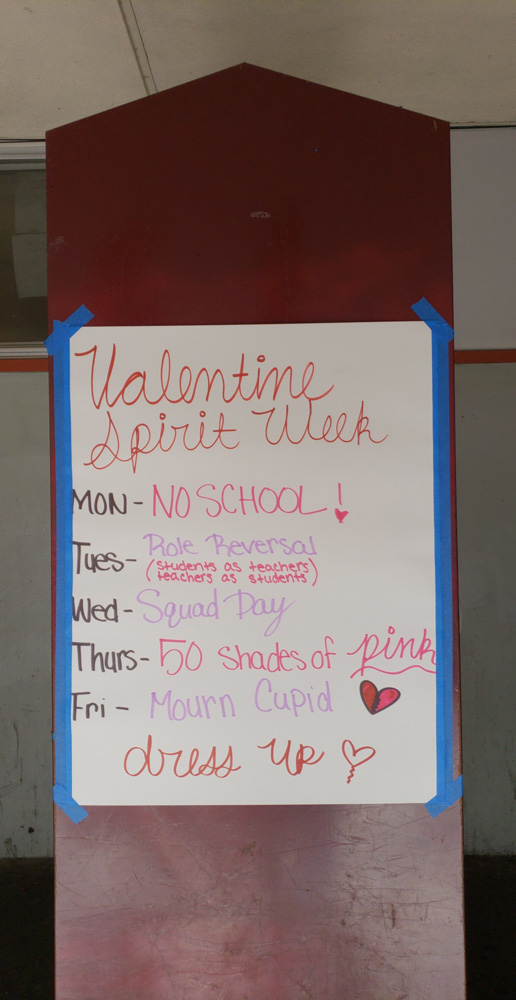 Valentine
Spirit Week
MON - NO SCHOOL!
Tues - Role Reversal
(students as teachers
teachers as students)
Wed - Squad Day
Thurs - 50 shades of pink
Fri - Mourn Cupid
dress up